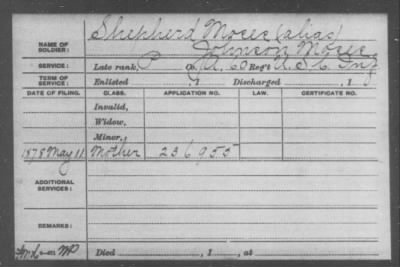 Shepherd Moses (alias)
NAME OF SOLDIER: Johnson Moses
SERVICE: Late rank, P Co. A, 60 Reg't U.S.C. Inf
TERM OF SERVICE: Enlisted , 1 Discharged , 1
DATE OF FILING. CLASS. APPLICATION NO. LAW. CERTIFICATE NO.
Invalid,
Widow,
Minor,
1878 May 11 Mother 236955
ADDITIONAL SERVICES:
REMARKS:
Died , 1 , at